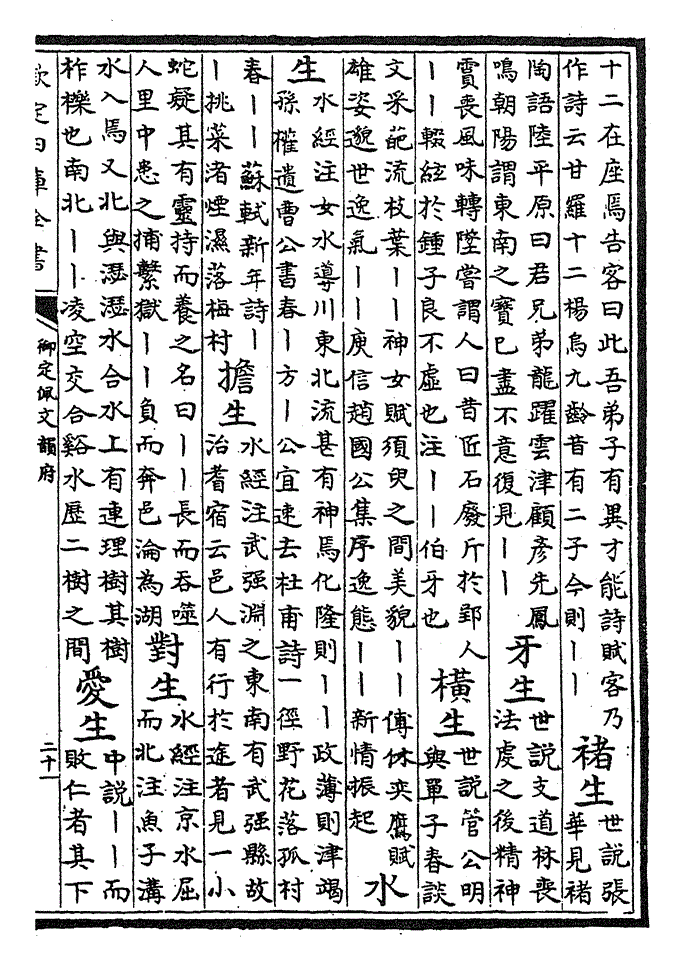 十二在座焉告客曰此吾弟子有異才能詩賦客乃
作詩云甘羅十二楊烏九齡昔有二子今則丨丨
褚生
世說張
華見褚
陶語陸平原曰君兄弟龍躍雲津顧彥先鳳
鳴朝陽謂東南之寶已盡不意復見丨丨
牙生
世說支道林喪
法虔之後精神
霣喪風味轉墜嘗謂人曰昔匠石廢斤於郢人
丨丨輟絃於鍾子良不虛也注丨丨伯牙也
橫生
世說管公明
與單子春談
文采葩流枝葉丨丨神女賦須臾之間美貌丨丨傅休奕鷹賦
雄姿邈世逸氣丨丨庾信趙國公集序逸態丨丨新情振起
水
生
水經注女水導川東北流甚有神焉化隆則丨丨政薄則津竭
孫權遺曹公書春丨方丨公宜速去杜甫詩一徑野花落孤村
春丨丨蘇軾新年詩丨
丨挑菜渚煙濕落梅村
擔生
水經注武强淵之東南有武强縣故
治耆宿云邑人有行於途者見一小
蛇疑其有靈持而養之名曰丨丨長而吞噬
人里中患之捕繫獄丨丨負而奔邑淪為湖
對生
水經注京水屈
而北注魚子溝
水入焉又北與濏濏水合水上有連理樹其樹
柞櫟也南北丨丨凌空交合谿水歷二樹之間
愛生
中說丨丨而
敗仁者其下
欽定四庫全書
御定佩文韻府
二十一